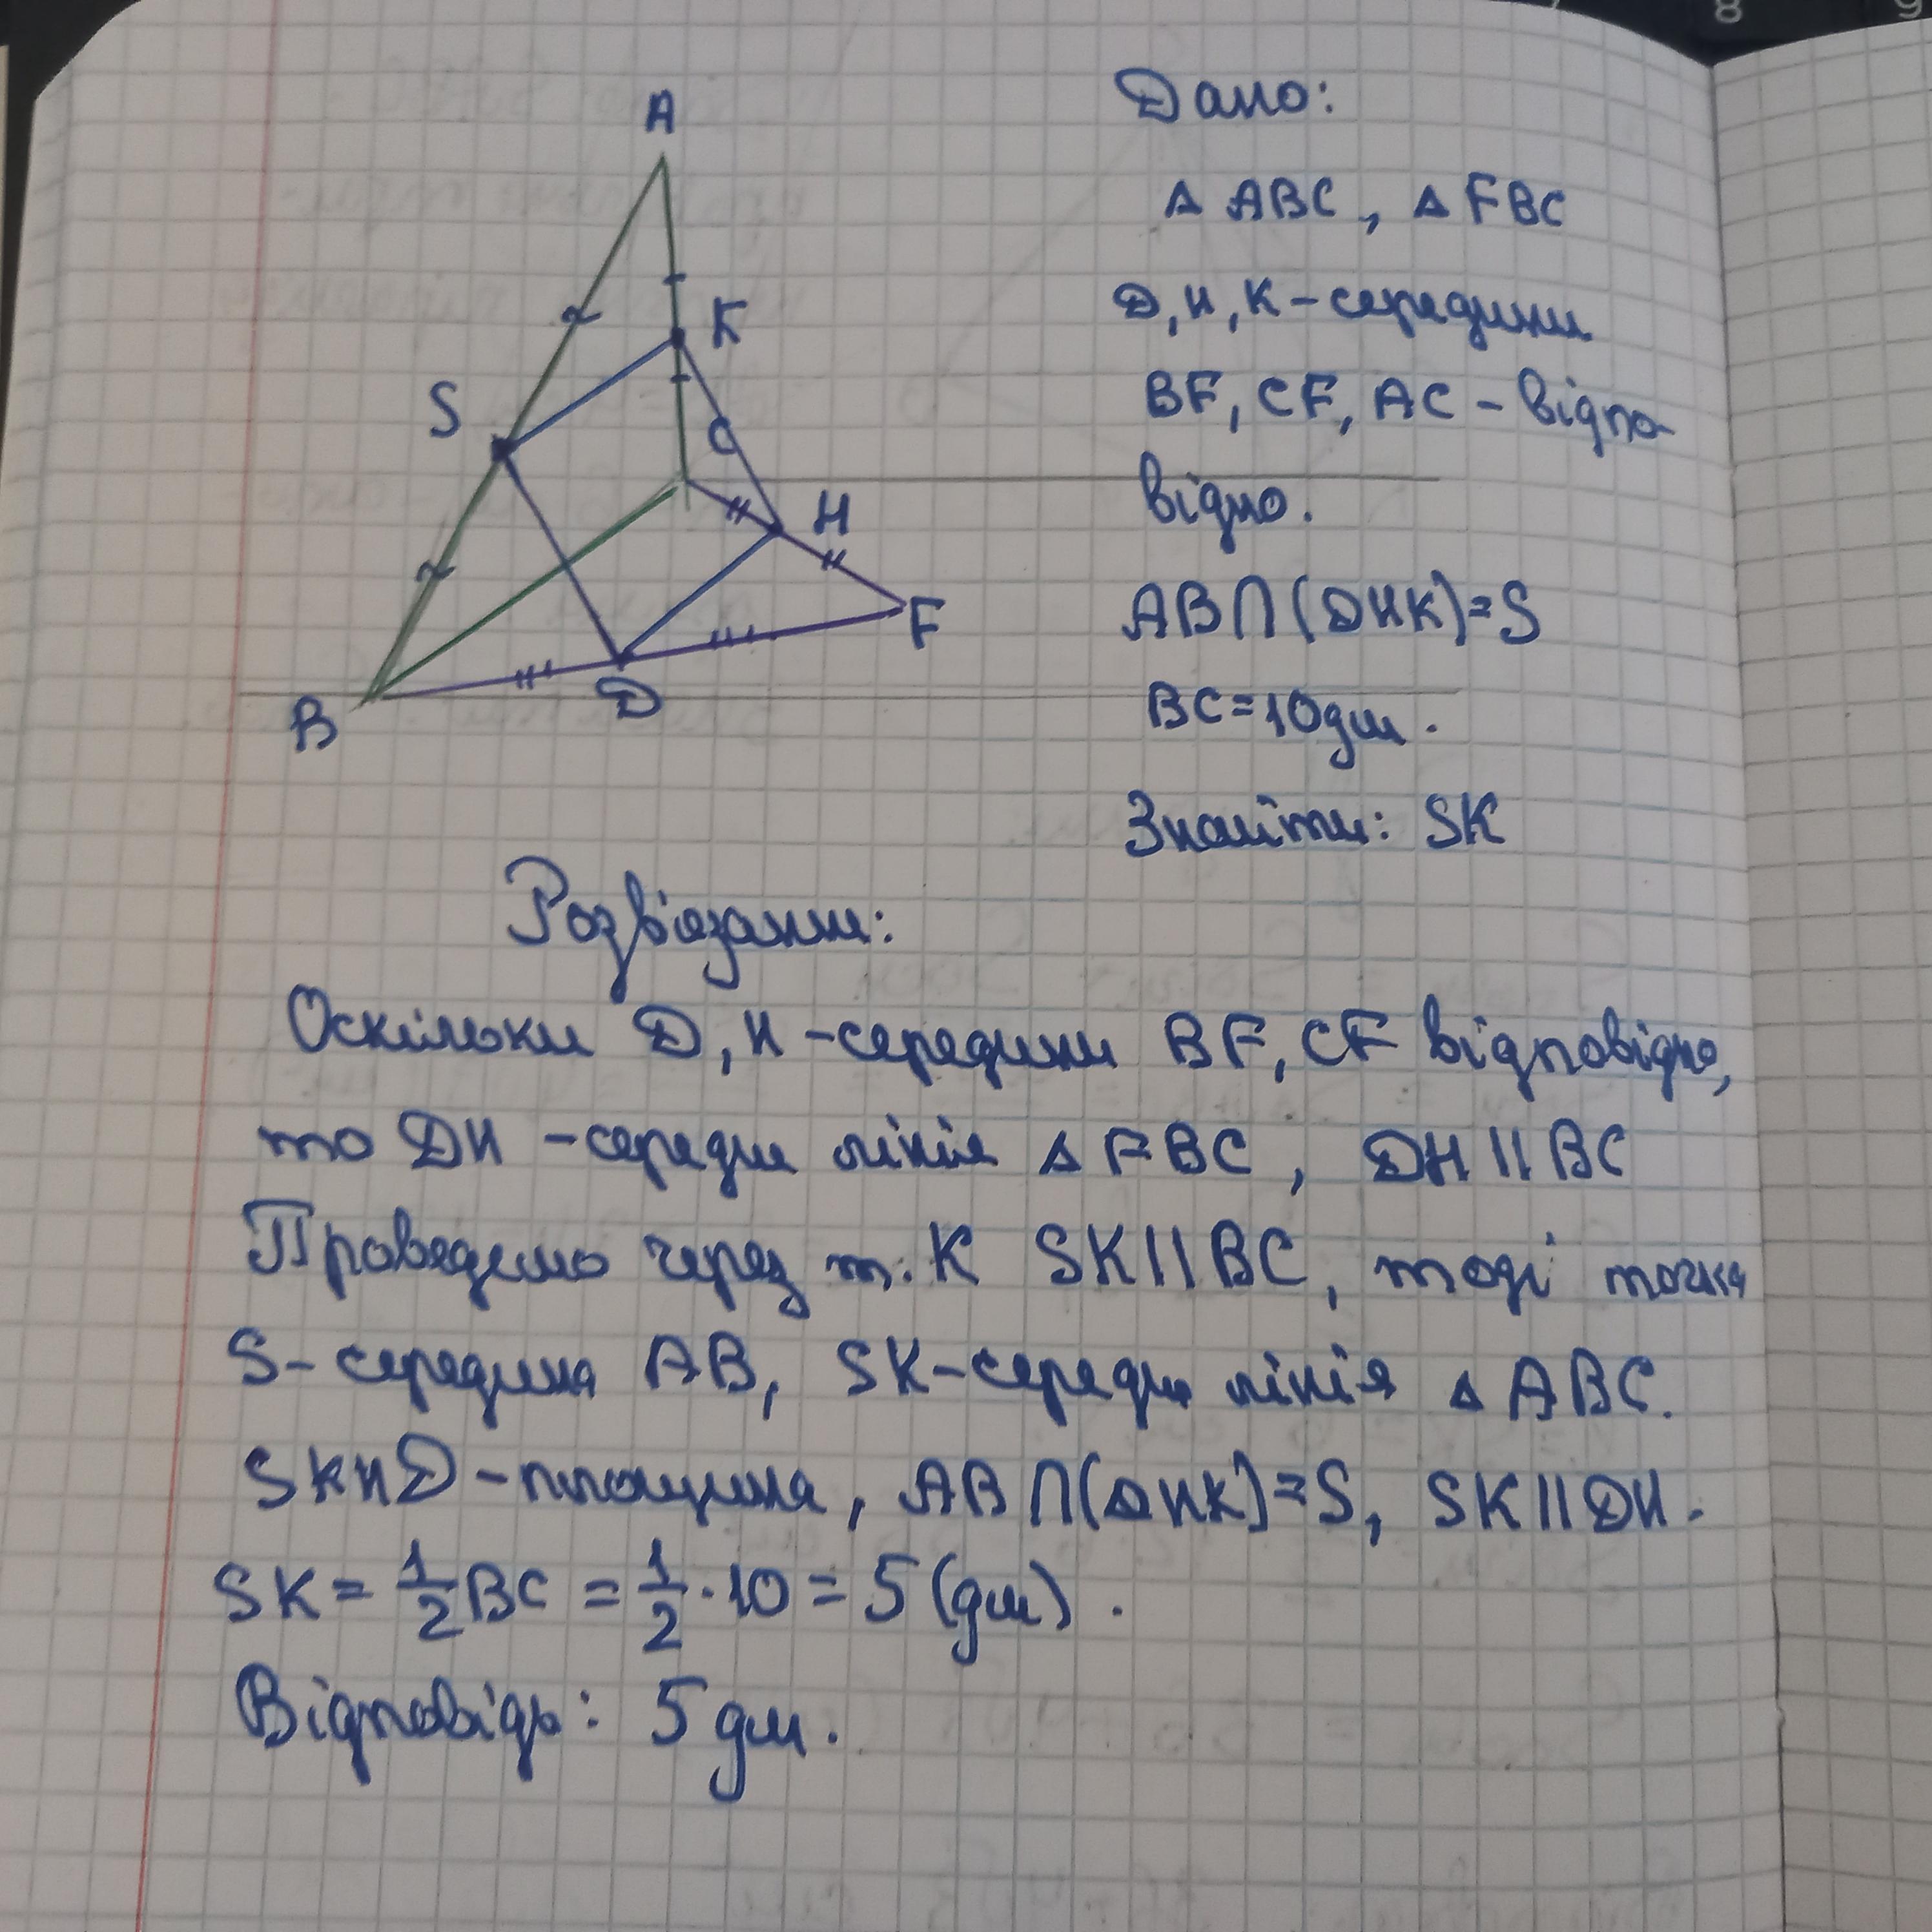 A
K
S
C
H
F
D
B
Дано:
△ ABC, △ FBC
D, H, K – середини
BF, CF, AC – відпо-
відно.
AB∩(DHK)=S
BC=10дм.
Знайти: SK
Розв'язання:
Оскільки D, H – середини BF, CF відповідно,
то DH – середня лінія △ FBC, DH || BC
Проведемо через т. K SK || BC, тоді точка
S – середина AB, SK – середня лінія △ ABC.
SKHD – площина, AB∩(DHK)=S, SK || DH.
SK = 1/2 BC = 1/2 · 10 = 5 (дм).
Відповідь: 5 дм.
8
9